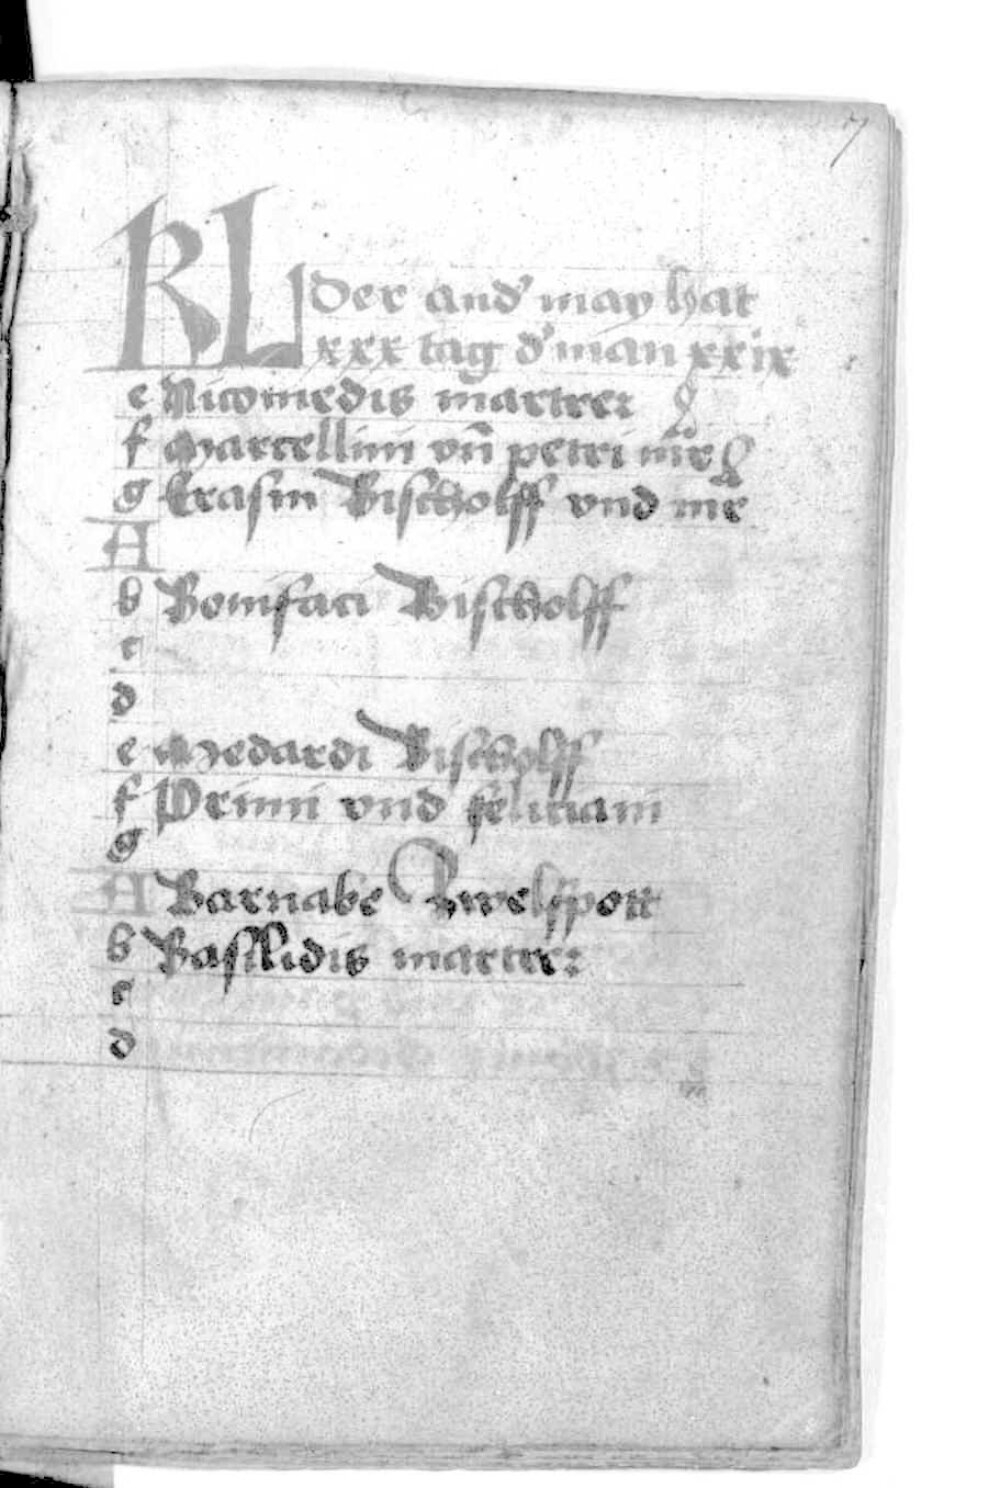 7
KL der and' may hat
xxx tag d' man xxix
e Nicomedis martrer
f Marcellini vn̄ petri mr̄
g Erasm Bischolff vnd mr̄
A
b Bonifaci Bischolff
c
d
e Medardi Bischolff
f Primi vnd feliciani
g
A Barnabe Zwelfpott
b Basilidis martrer
c
d